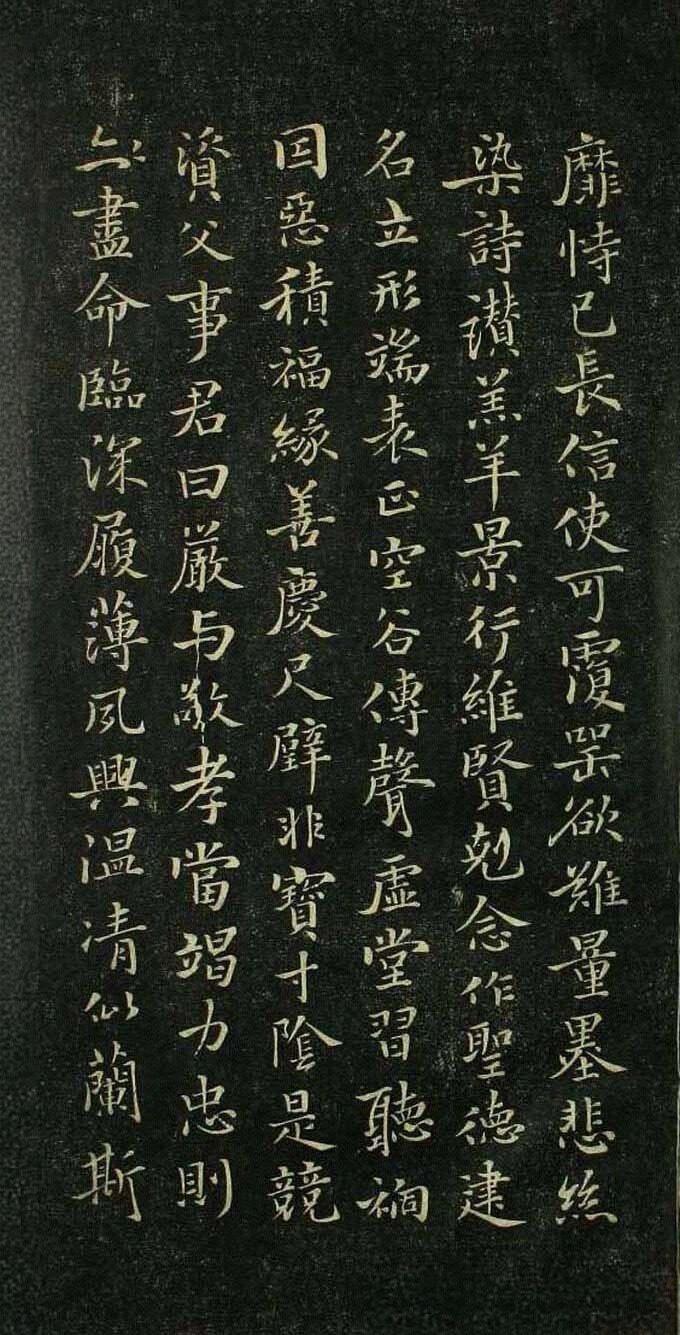 靡恃己長信使可覆器欲難量墨悲絲
染詩讃羔羊景行維賢剋念作聖德建
名立形端表正空谷傳聲虛堂習聽禍
因惡積福緣善慶尺璧非寶寸陰是競
資父事君曰嚴与敬孝當竭力忠則
盡命臨深履薄夙興温凊似蘭斯